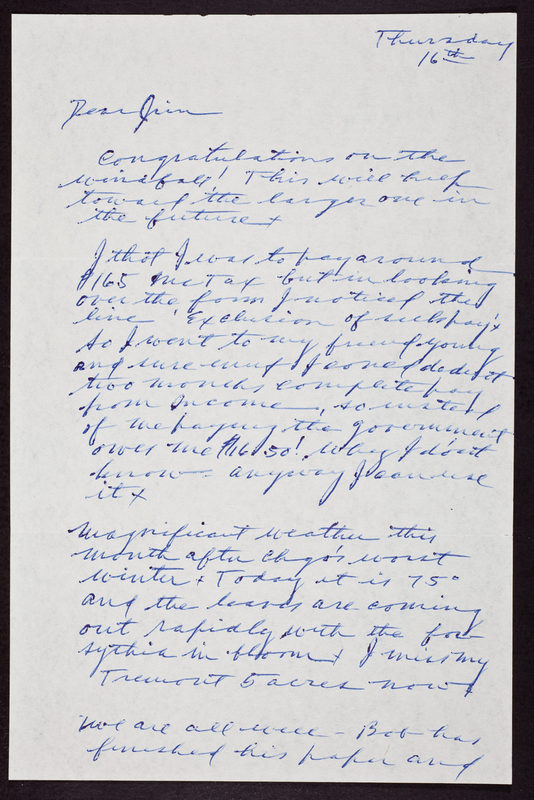 Thursday
16th
Dear Jim
Congratulations on the
windfall! This will help
toward the larger one in
the future x
I thot I was to pay around
$165 Inc Tax but in looking
over the form I noticed the
line "Exclusion of sick pay" x
So I went to my friend young
and sure enuf I could deduct
two months complete pay
from Income, so instead
of me paying the government
owes me $16.50! Why I don't
know - anyway I can use
it x
Magnificent weather this
month after Chgo's worst
winter x Today it is 75°
and the leaves are coming
out rapidly with the for-
sythia in bloom x I miss my
Tremont 5 acres now x
We are all well - Bob has
finished his paper and